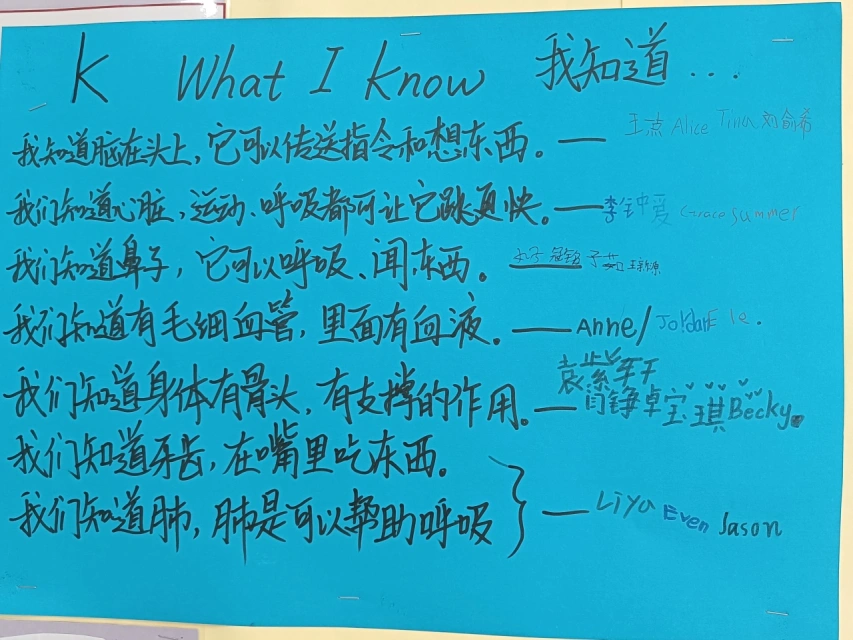 K What I Know 我知道...
我知道脑在头上，它可以传送指令和想东西。— Alice Tina
我们知道心脏，运动、呼吸都可让它跳更快。— 李钟爱 Grace summer
我们知道鼻子，它可以呼吸、闻东西。—
我们知道有毛细血管，里面有血液。— Anne/
袁紫轩
我们知道身体有骨头，有支撑的作用。— 闫铮卓 宝琪 Becky
我们知道牙齿，在嘴里吃东西。
我们知道肺，肺是可以帮助呼吸 — Liya Even Jason